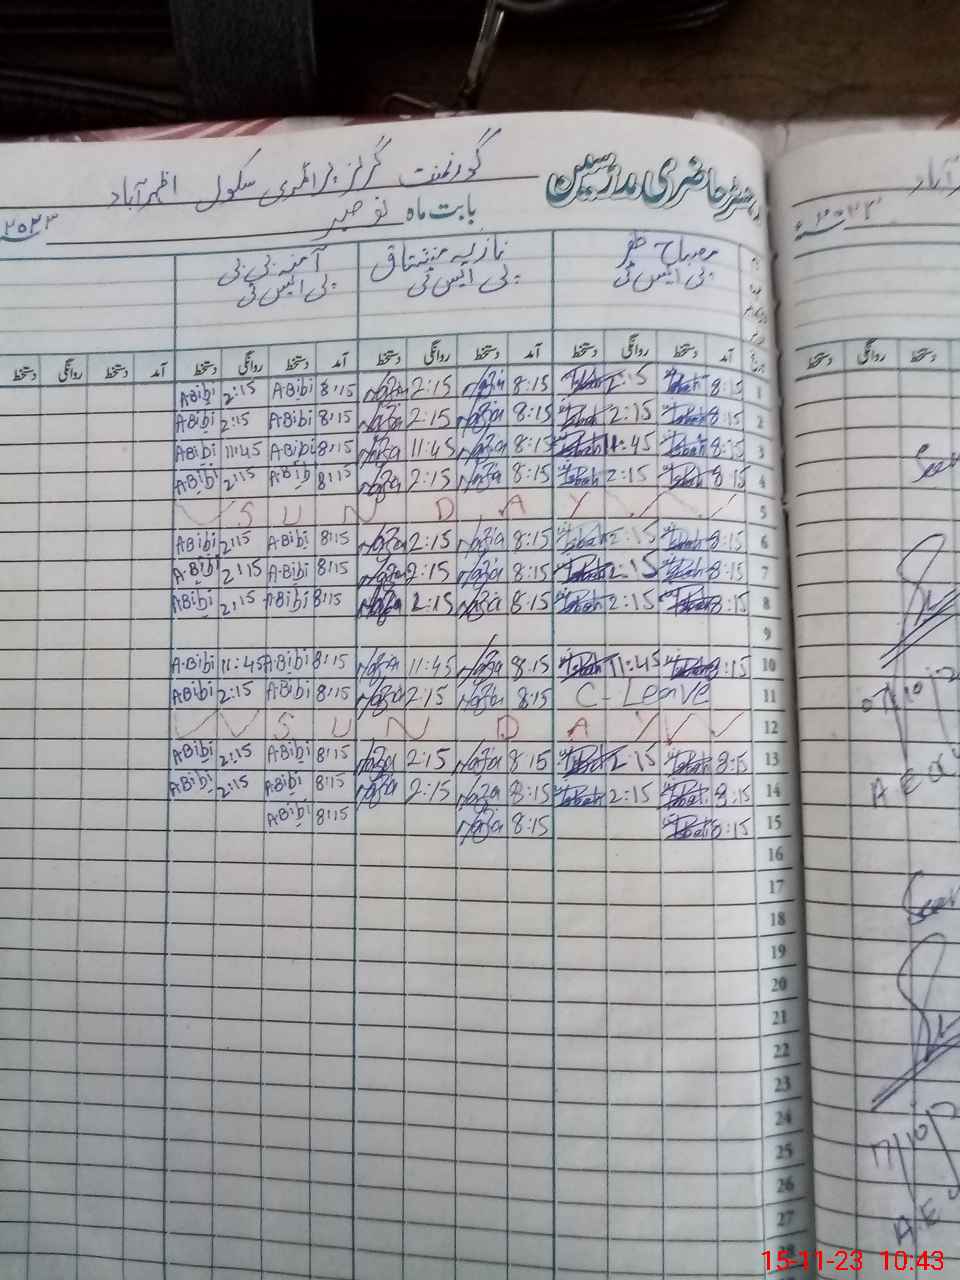 رجسٹر حاضری مدرسین گورنمنٹ گرلز پرائمری سکول اظہر آباد
بابت ماہ نومبر ۲۰۲۳
مصباح ظفر نازیہ مشتاق آمنہ بی بی
پی ایس ٹی پی ایس ٹی پی ایس ٹی
آمد دستخط روانگی دستخط آمد دستخط روانگی دستخط آمد دستخط روانگی دستخط آمد دستخط روانگی دستخط
A·Bibi 2:15 A·Bibi 8:15 Nazia 2:15 Nazia 8:15 2:15 8:15 1
A·Bibi 2:15 A·Bibi 8:15 Nazia 2:15 Nazia 8:15 2:15 8:15 2
A·Bibi 11:45 A·Bibi 8:15 Nazia 11:45 Nazia 8:15 11:45 8:15 3
A·Bibi 2:15 A·Bibi 8:15 Nazia 2:15 Nazia 8:15 2:15 8:15 4
S U N D A Y 5
A·Bibi 2:15 A·Bibi 8:15 Nazia 2:15 Nazia 8:15 2:15 8:15 6
A·Bibi 2:15 A·Bibi 8:15 Nazia 2:15 Nazia 8:15 2:15 8:15 7
A·Bibi 2:15 A·Bibi 8:15 Nazia 2:15 Nazia 8:15 2:15 8:15 8
9
A·Bibi 11:45 A·Bibi 8:15 Nazia 11:45 Nazia 8:15 11:45 8:15 10
A·Bibi 2:15 A·Bibi 8:15 Nazia 2:15 Nazia 8:15 C - Leave 11
S U N D A Y 12
A·Bibi 2:15 A·Bibi 8:15 Nazia 2:15 Nazia 8:15 2:15 8:15 13
A·Bibi 2:15 A·Bibi 8:15 Nazia 2:15 Nazia 8:15 2:15 8:15 14
A·Bibi 8:15 Nazia 8:15 8:15 15
16
17
18
19
20
21
22
23
24
25
26
27
28
15-11-23 10:43